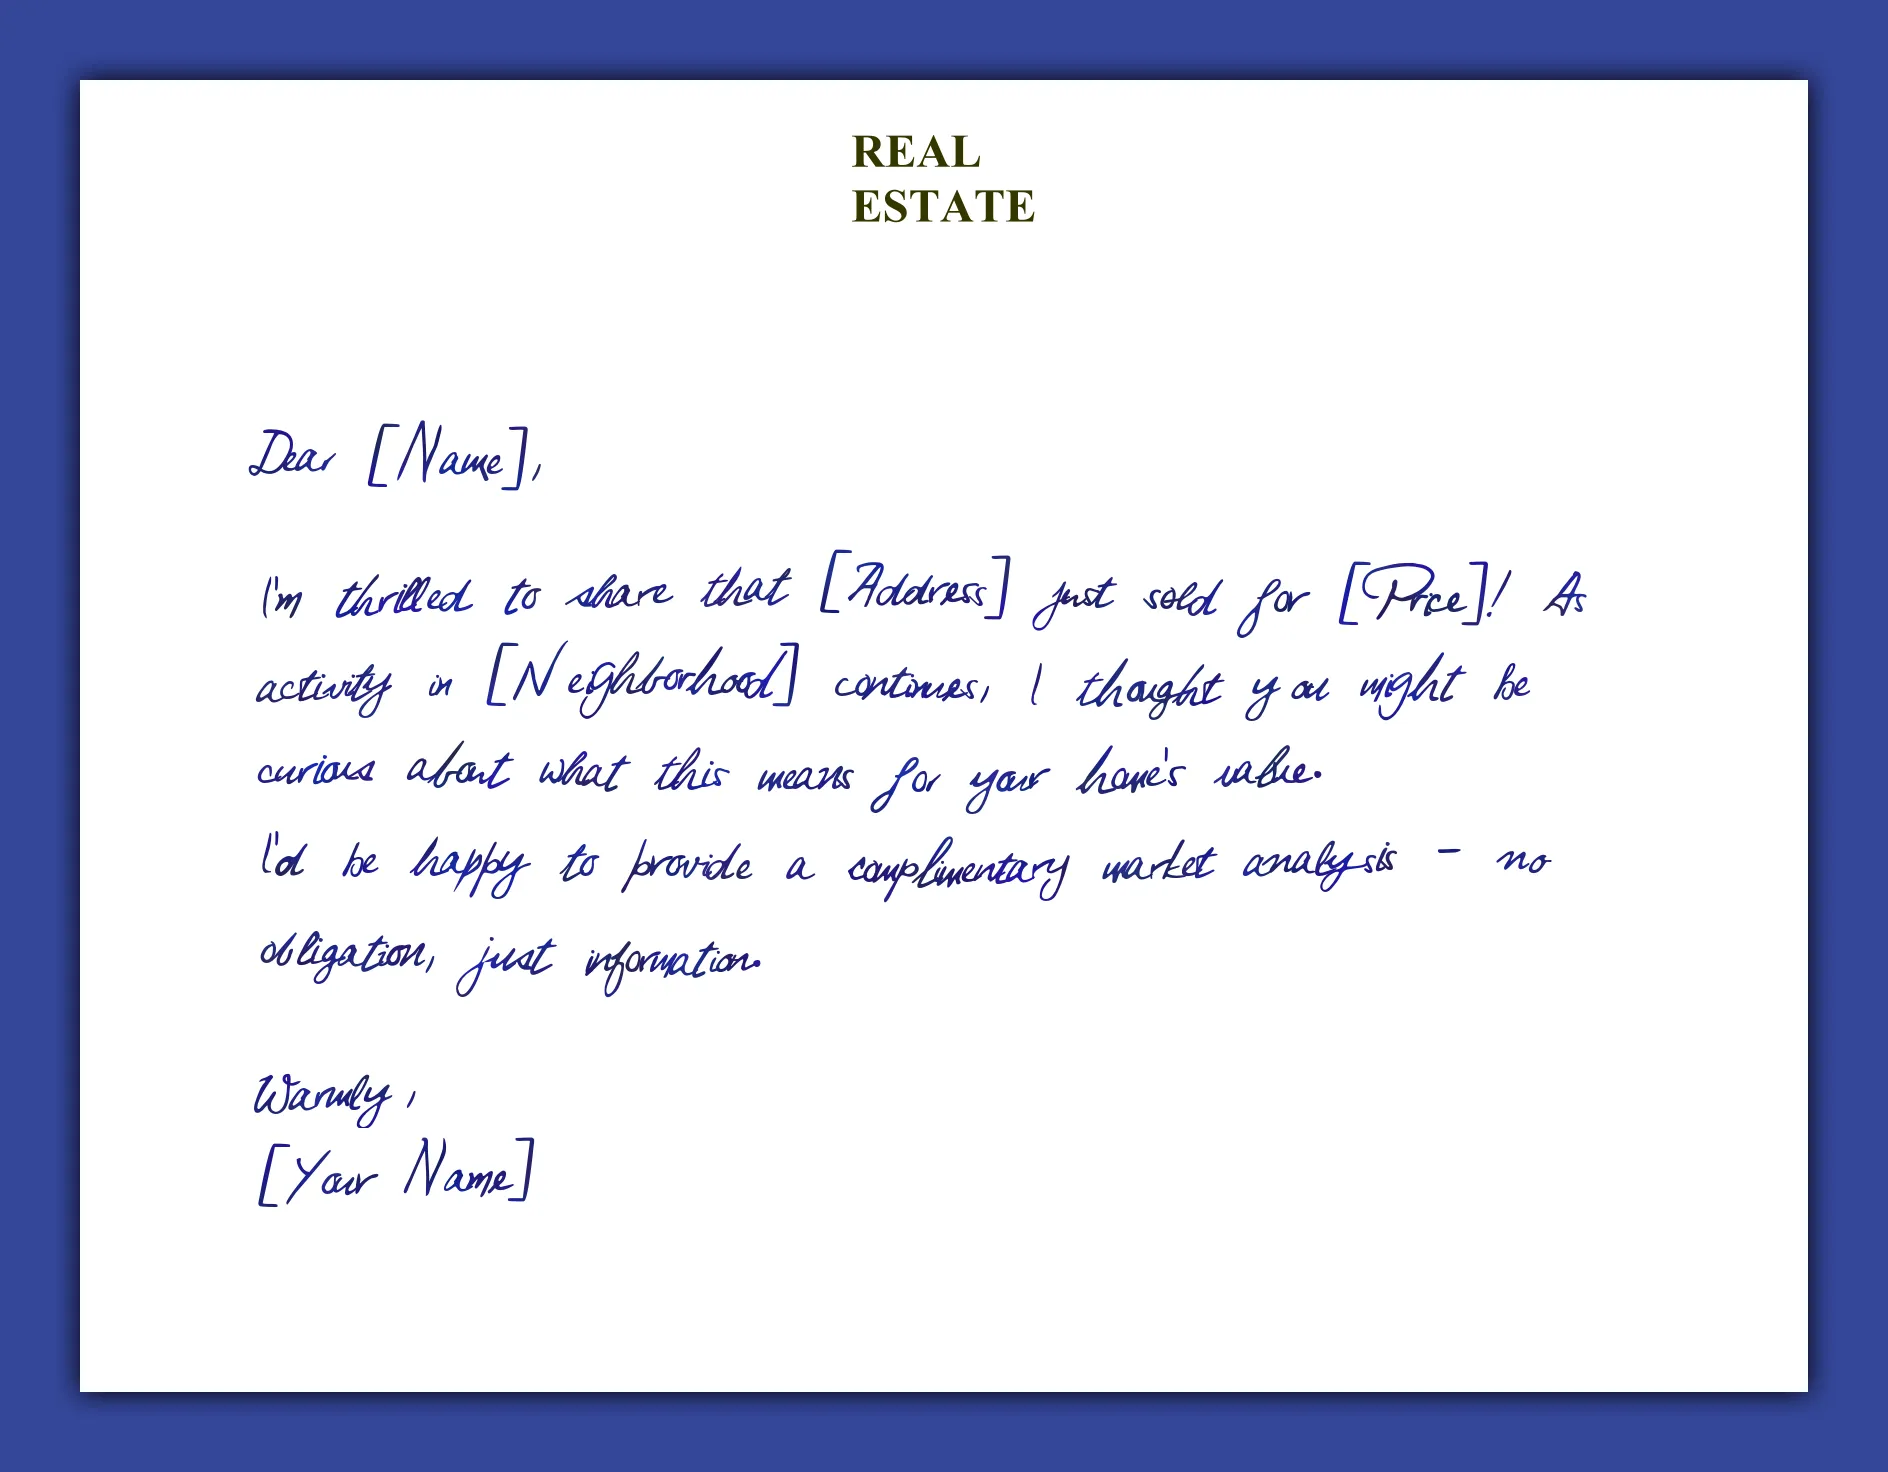 REAL
ESTATE
Dear [Name],
I'm thrilled to share that [Address] just sold for [Price]! As
activity in [Neighborhood] continues, I thought you might be
curious about what this means for your home's value.
I'd be happy to provide a complimentary market analysis - no
obligation, just information.
Warmly,
[Your Name]